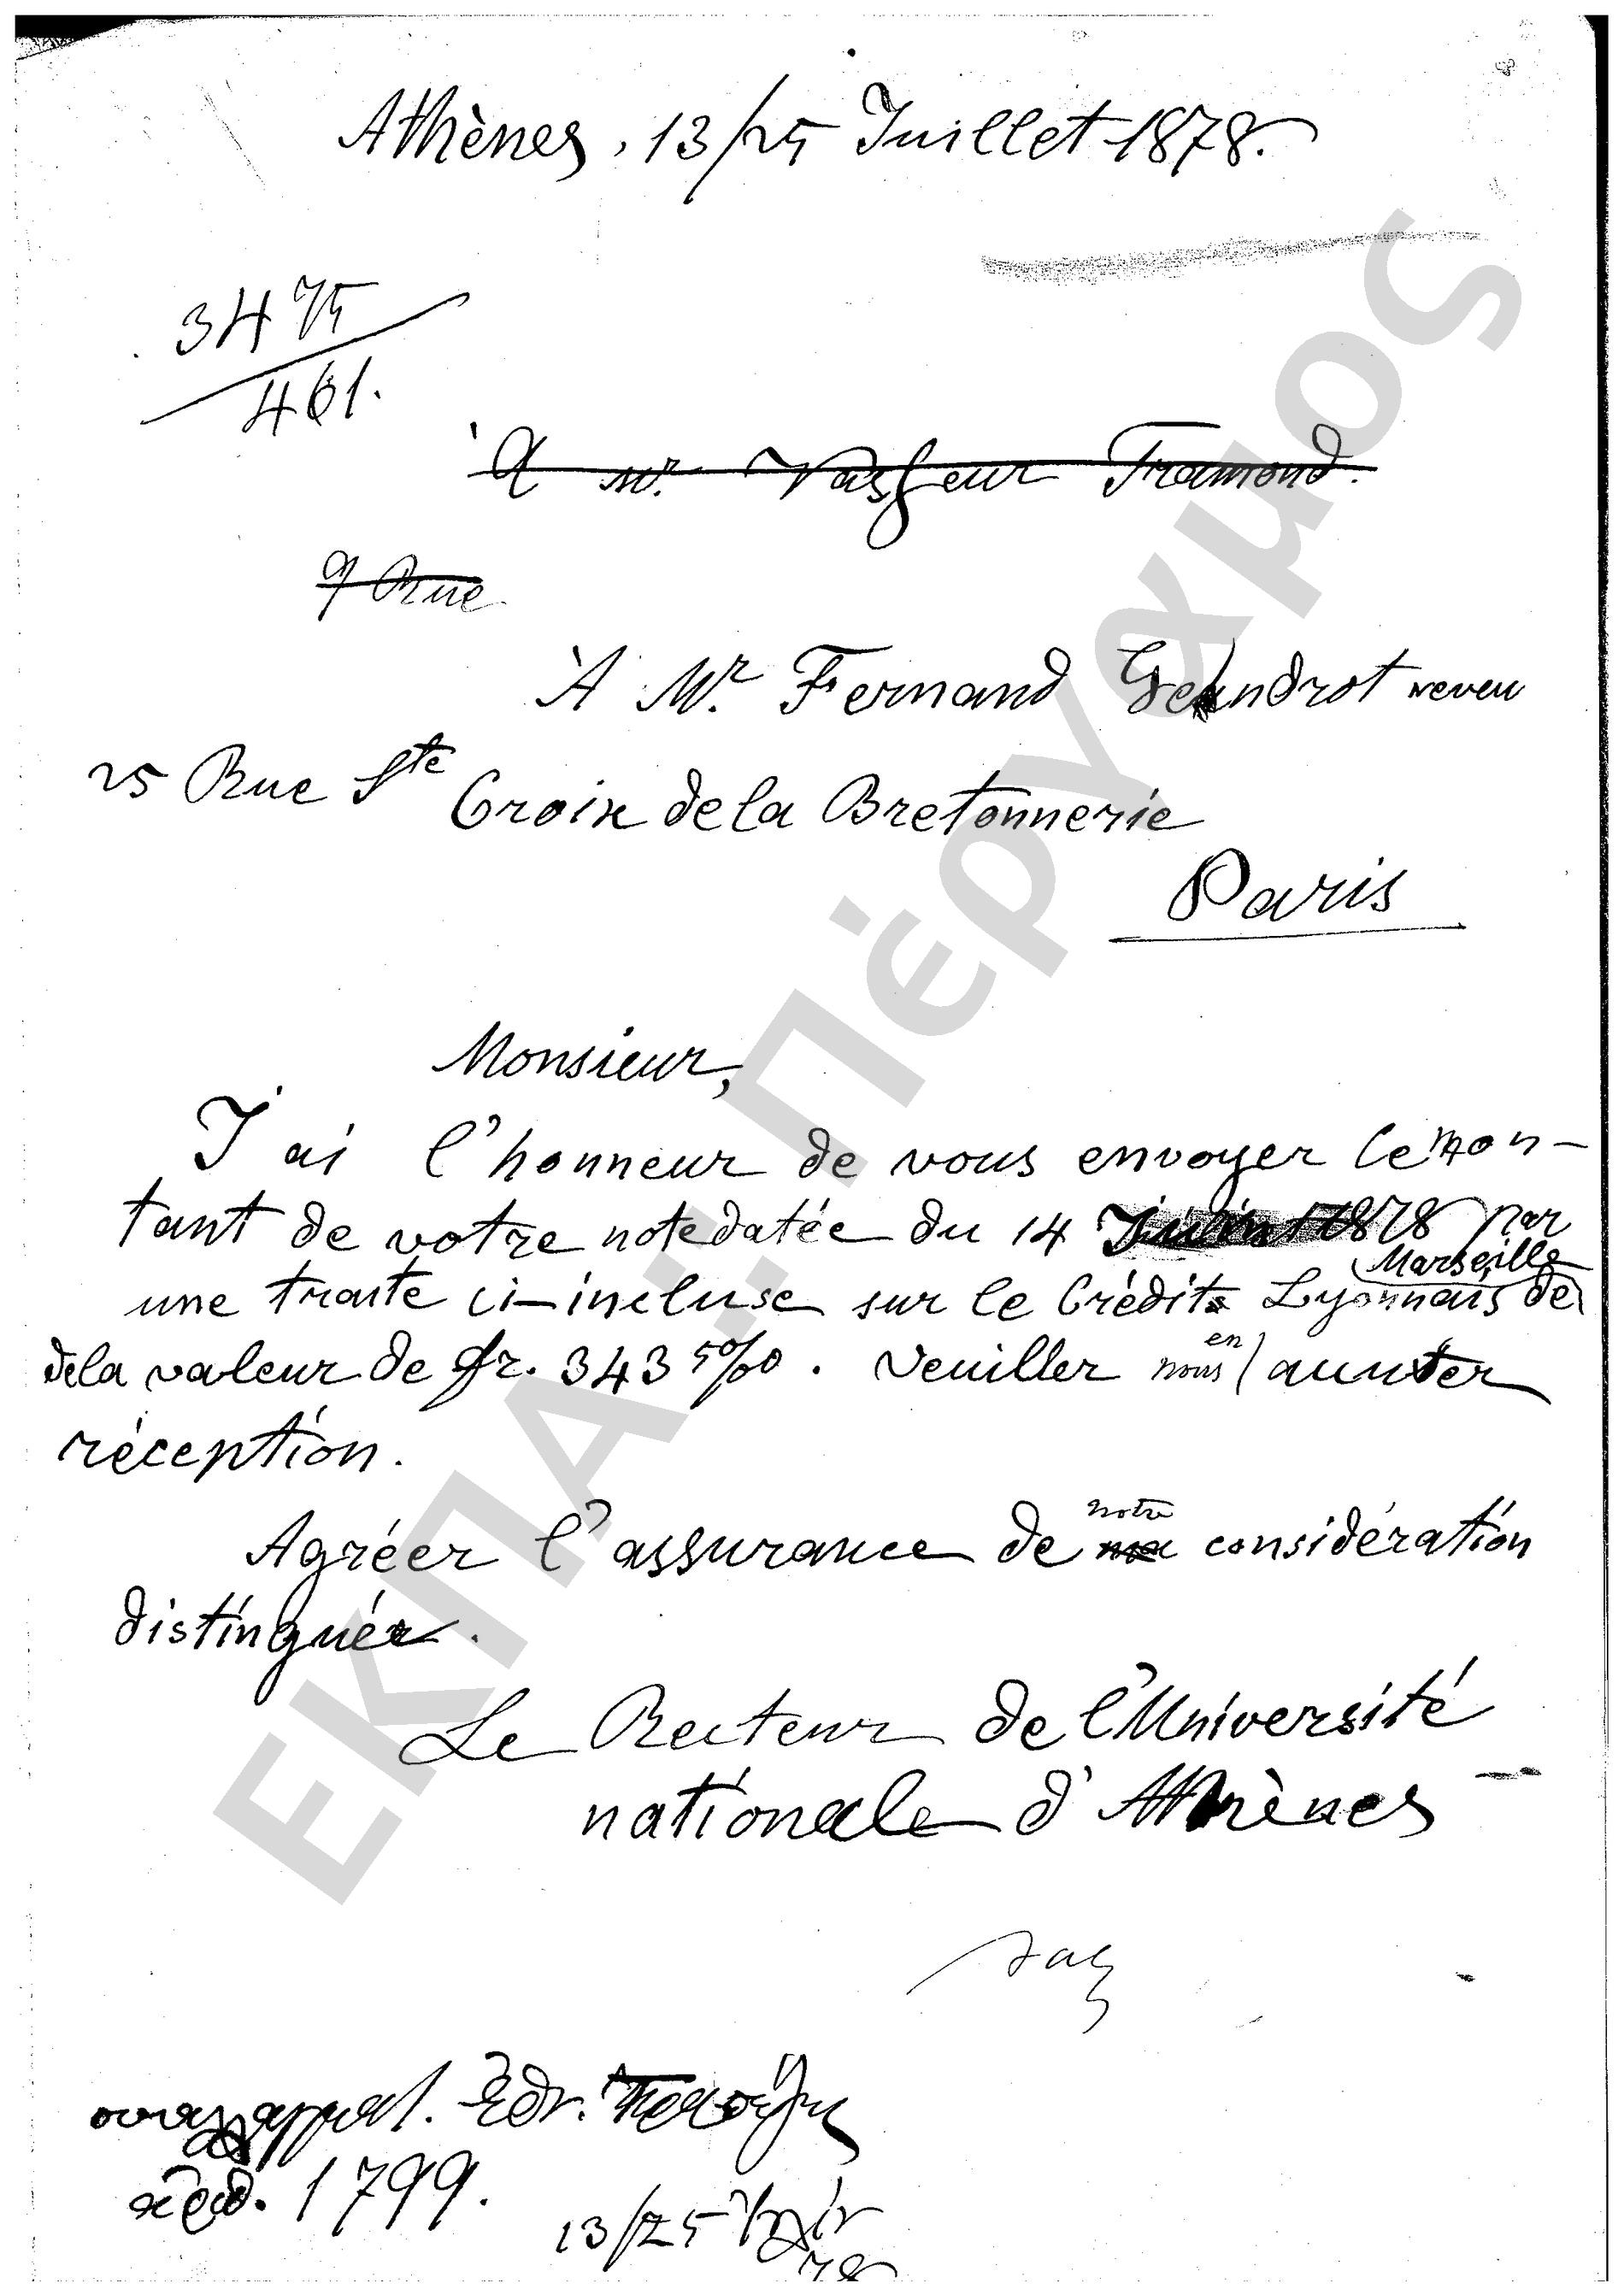 Athènes, 13/25 Juillet 1878.
3475
461.
À Mr. Vasseur Tramond.
9 Rue
À Mr. Fernand Gendrot neveu
25 Rue Ste Croix de la Bretonnerie
Paris
Monsieur,
J'ai l'honneur de vous envoyer le mon-
tant de votre note datée du 14 1878 par
Marseille
une traite ci-incluse sur le Crédit Lyonnais de
de la valeur de fr. 343 50/00. Veuiller nous en
réception.
Agréer l'assurance de ma notre considération
distinguée.
Le Recteur de l'Université
nationale d'Athènes
συναλλαγματ. Εθν. Τραπέζης
ἀριθ. 1799.
13/25 Ἰουλίου
78
ΕΚΠΑ.:. Πέργαμος